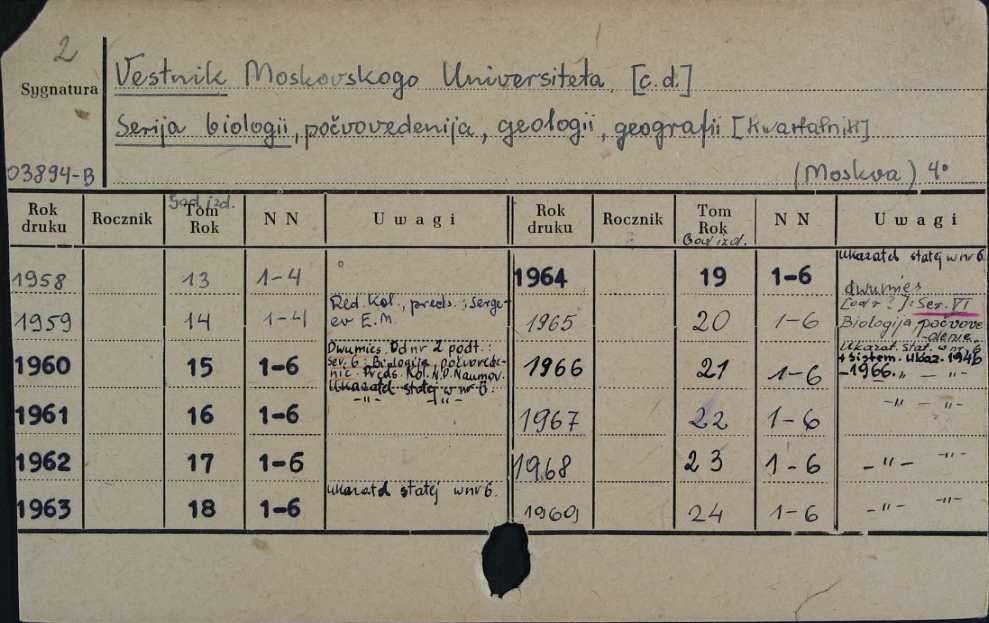 2
Sygnatura
Vestnik Moskovskogo Universiteta [c.d.]
Serija biologii, počvovedenija, geologii, geografii [Kwartalnik]
03894-B
(Moskva) 4°
Rok druku Rocznik God izd. Tom Rok N N Uwagi Rok druku Rocznik Tom Rok God izd. N N Uwagi
1958 13 1-4 1964 19 1-6 Ukazatel statej w nr 6. dwumies.
1959 14 1-4 Red. Kol., preds.: Serge-ev E.M. 1965 20 1-6 [od r ?]: Ser. VI Biologija počvove-denie.
1960 15 1-6 Dwumies. Od nr 2 podt.: Ser. 6: Biologija, počvovede-nie. Preds. Kol. N.P. Naumov. Ukazatel statej w nr 6. 1966 21 1-6 Ukazat. stat. w nr 6 + Sistem. ukaz. 1946-1966. „ — -"-
1961 16 1-6 -"- -"- 1967 22 1-6 -"- -"-
1962 17 1-6 1968 23 1-6 -"- -"-
1963 18 1-6 Ukazatel statej w nr 6. 1969 24 1-6 -"- -"-